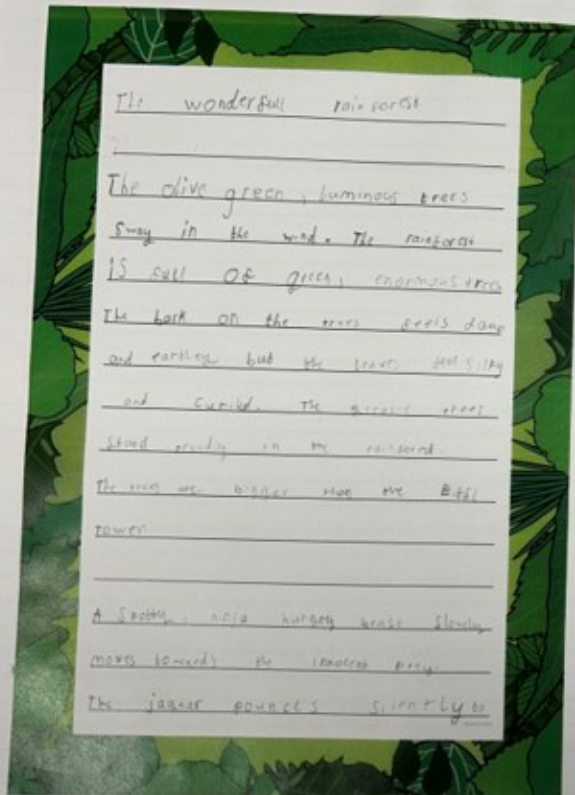 The wonderfull rainforest
The olive green, luminous trees
sway in the wind. The rainforest
is full of green, enormous trees
The bark on the trees feels damp
and earthey but the leaves feel silky
and curled. The trees
stood proudly in the
The trees are bigger than the Effil
tower
A spotty, ninja hungrey beast slowly
moves towards the innocent prey.
The jaguar pounces silently to